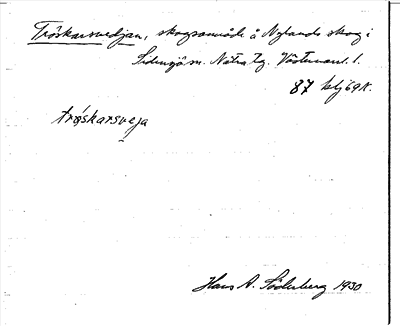 Tröskarsvedjan, skogsområde å Nylands skog i
Sidensjö sn. Nätra tg. Västernorrl. l.
87
tröskarsveja
Hans A. Söderberg 1930